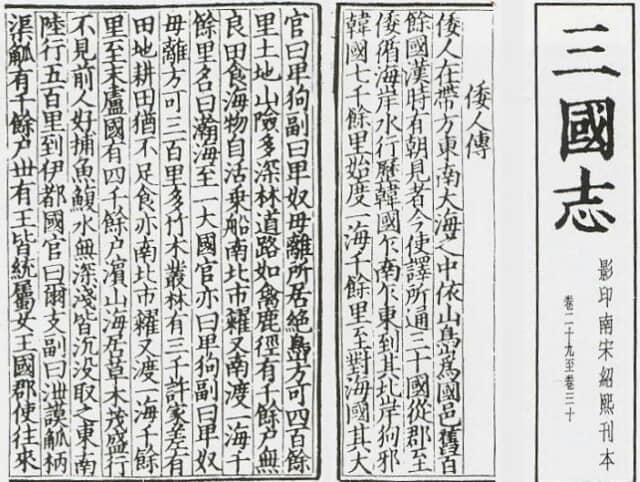 三國志
影印南宋紹熙刊本
卷二十九至卷三十
倭人傳
倭人在帶方東南大海之中依山㠀為國邑舊百
餘國漢時有朝見者今使譯所通三十國從郡至
倭循海岸水行歷韓國乍南乍東到其北岸狗邪
韓國七千餘里始度一海千餘里至對海國其大
官曰卑狗副曰卑奴毋離所居絕㠀方可四百餘
里土地山險多深林道路如禽鹿徑有千餘户無
良田食海物自活乗船南北市糴又南渡一海千
餘里名曰瀚海至一大國官亦曰卑狗副曰卑奴
毋離方可三百里多竹木叢林有三千許家差有
田地耕田猶不足食亦南北市糴又渡一海千餘
里至末盧國有四千餘户濵山海居草木茂盛行
不見前人好捕魚鰒水無深淺皆沉没取之東南
陸行五百里到伊都國官曰爾支副曰泄謨觚柄
渠觚有千餘户丗有王皆統屬女王國郡使往來